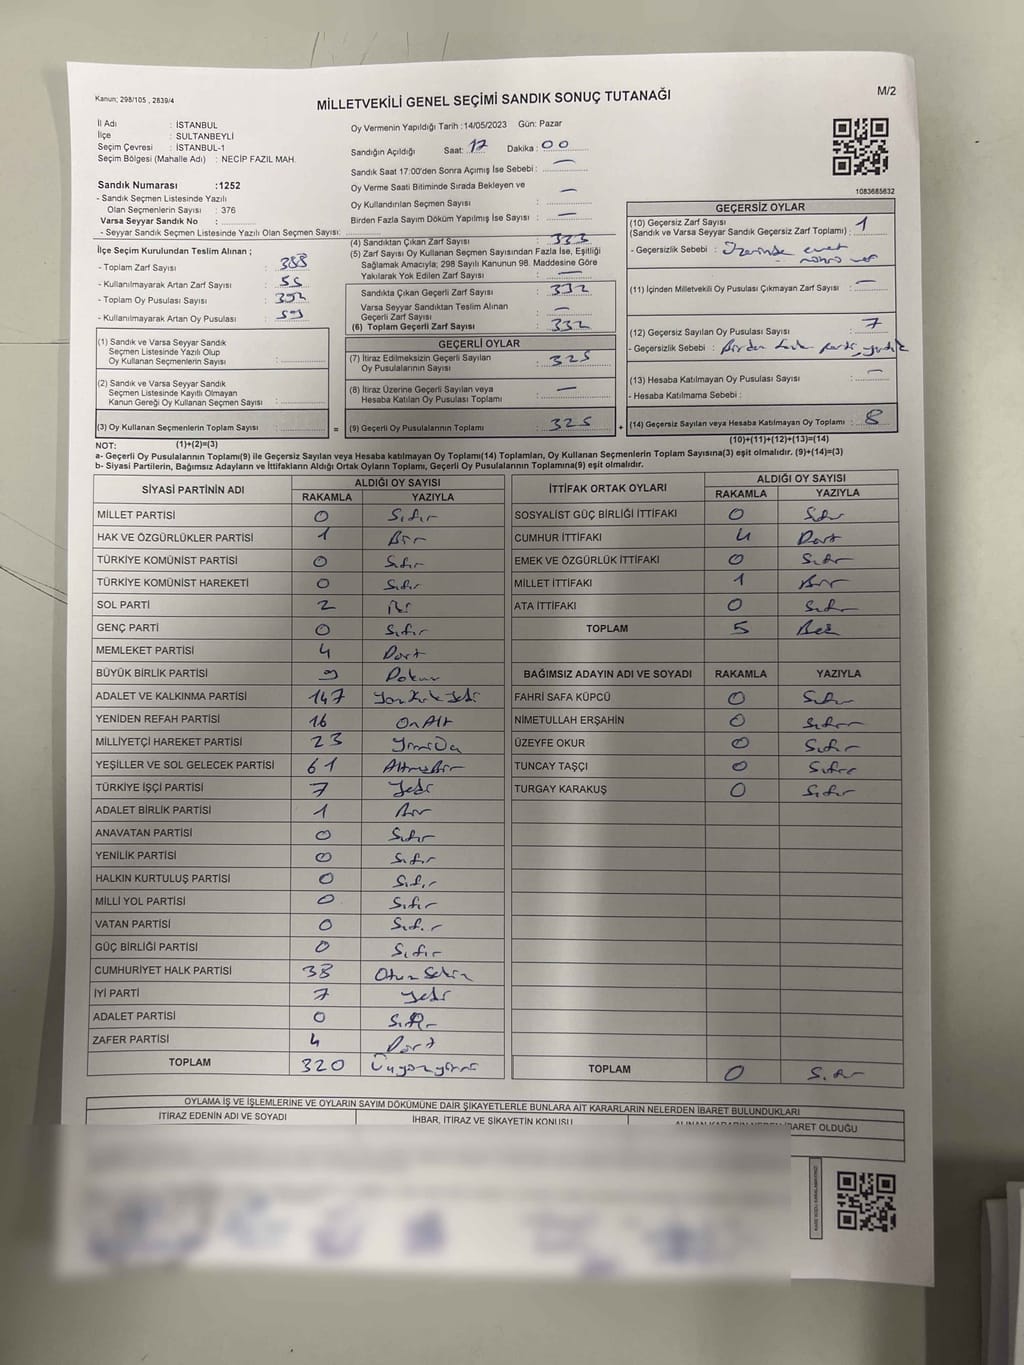 Kanun; 298/105 , 2839/4
MİLLETVEKİLİ GENEL SEÇİMİ SANDIK SONUÇ TUTANAĞI
M/2
İl Adı : İSTANBUL
İlçe : SULTANBEYLİ
Seçim Çevresi : İSTANBUL-1
Seçim Bölgesi (Mahalle Adı) : NECİP FAZIL MAH.
Sandık Numarası :1252
- Sandık Seçmen Listesinde Yazılı
Olan Seçmenlerin Sayısı : 376
Varsa Seyyar Sandık No :
- Seyyar Sandık Seçmen Listesinde Yazılı Olan Seçmen Sayısı:
Oy Vermenin Yapıldığı Tarih :14/05/2023 Gün: Pazar
Sandığın Açıldığı Saat: 17 Dakika : 00
Sandık Saat 17:00'den Sonra Açımış İse Sebebi : —
Oy Verme Saati Bitiminde Sırada Bekleyen ve
Oy Kullandırılan Seçmen Sayısı : —
Birden Fazla Sayım Döküm Yapılmış İse Sayısı : —
1083685632
İlçe Seçim Kurulundan Teslim Alınan ;
- Toplam Zarf Sayısı : 388
- Kullanılmayarak Artan Zarf Sayısı : 55
- Toplam Oy Pusulası Sayısı :
- Kullanılmayarak Artan Oy Pusulası : 59
(1) Sandık ve Varsa Seyyar Sandık
Seçmen Listesinde Yazılı Olup
Oy Kullanan Seçmenlerin Sayısı :
(2) Sandık ve Varsa Seyyar Sandık
Seçmen Listesinde Kayıtlı Olmayan
Kanun Gereği Oy Kullanan Seçmen Sayısı :
(3) Oy Kullanan Seçmenlerin Toplam Sayısı :
(4) Sandıktan Çıkan Zarf Sayısı : 333
(5) Zarf Sayısı Oy Kullanan Seçmen Sayısından Fazla İse, Eşitliği
Sağlamak Amacıyla; 298 Sayılı Kanunun 98. Maddesine Göre
Yakılarak Yok Edilen Zarf Sayısı : —
Sandıkta Çıkan Geçerli Zarf Sayısı : 332
Varsa Seyyar Sandıktan Teslim Alınan
Geçerli Zarf Sayısı : —
(6) Toplam Geçerli Zarf Sayısı : 332
GEÇERLİ OYLAR
(7) İtiraz Edilmeksizin Geçerli Sayılan
Oy Pusulalarının Sayısı : 325
(8) İtiraz Üzerine Geçerli Sayılan veya
Hesaba Katılan Oy Pusulası Toplamı : —
= (9) Geçerli Oy Pusulalarının Toplamı : 325 +
GEÇERSİZ OYLAR
(10) Geçersiz Zarf Sayısı
(Sandık ve Varsa Seyyar Sandık Geçersiz Zarf Toplamı) : 1
- Geçersizlik Sebebi : Üzerinde evet
(11) İçinden Milletvekili Oy Pusulası Çıkmayan Zarf Sayısı : —
(12) Geçersiz Sayılan Oy Pusulası Sayısı : 7
- Geçersizlik Sebebi : Birden
(13) Hesaba Katılmayan Oy Pusulası Sayısı : —
- Hesaba Katılmama Sebebi :
(14) Geçersiz Sayılan veya Hesaba Katılmayan Oy Toplamı : 8
NOT: (1)+(2)=(3) (10)+(11)+(12)+(13)=(14)
a- Geçerli Oy Pusulalarının Toplamı(9) ile Geçersiz Sayılan veya Hesaba katılmayan Oy Toplamı(14) Toplamları, Oy Kullanan Seçmenlerin Toplam Sayısına(3) eşit olmalıdır. (9)+(14)=(3)
b- Siyasi Partilerin, Bağımsız Adayların ve İttifakların Aldığı Ortak Oyların Toplamı, Geçerli Oy Pusulalarının Toplamına(9) eşit olmalıdır.
SİYASİ PARTİNİN ADI ALDIĞI OY SAYISI
RAKAMLA YAZIYLA
MİLLET PARTİSİ 0 Sıfır
HAK VE ÖZGÜRLÜKLER PARTİSİ 1 Bir
TÜRKİYE KOMÜNİST PARTİSİ 0 Sıfır
TÜRKİYE KOMÜNİST HAREKETİ 0 Sıfır
SOL PARTİ 2 İki
GENÇ PARTİ 0 Sıfır
MEMLEKET PARTİSİ 4 Dört
BÜYÜK BİRLİK PARTİSİ 9 Dokuz
ADALET VE KALKINMA PARTİSİ 147 Yüzkırkyedi
YENİDEN REFAH PARTİSİ 16 OnAltı
MİLLİYETÇİ HAREKET PARTİSİ 23 YirmiÜç
YEŞİLLER VE SOL GELECEK PARTİSİ 61 Altmışbir
TÜRKİYE İŞÇİ PARTİSİ 7 Yedi
ADALET BİRLİK PARTİSİ 1 Bir
ANAVATAN PARTİSİ 0 Sıfır
YENİLİK PARTİSİ 0 Sıfır
HALKIN KURTULUŞ PARTİSİ 0 Sıfır
MİLLİ YOL PARTİSİ 0 Sıfır
VATAN PARTİSİ 0 Sıfır
GÜÇ BİRLİĞİ PARTİSİ 0 Sıfır
CUMHURİYET HALK PARTİSİ 38 Otuz Sekiz
İYİ PARTİ 7 Yedi
ADALET PARTİSİ 0 Sıfır
ZAFER PARTİSİ 4 Dört
TOPLAM 320 Üçyüzyirmi
İTTİFAK ORTAK OYLARI ALDIĞI OY SAYISI
RAKAMLA YAZIYLA
SOSYALİST GÜÇ BİRLİĞİ İTTİFAKI 0 Sıfır
CUMHUR İTTİFAKI 4 Dört
EMEK VE ÖZGÜRLÜK İTTİFAKI 0 Sıfır
MİLLET İTTİFAKI 1 Bir
ATA İTTİFAKI 0 Sıfır
TOPLAM 5 Beş
BAĞIMSIZ ADAYIN ADI VE SOYADI RAKAMLA YAZIYLA
FAHRİ SAFA KÜPCÜ 0 Sıfır
NİMETULLAH ERŞAHİN 0 Sıfır
ÜZEYFE OKUR 0 Sıfır
TUNCAY TAŞÇI 0 Sıfır
TURGAY KARAKUŞ 0 Sıfır
TOPLAM 0 Sıfır
OYLAMA İŞ VE İŞLEMLERİNE VE OYLARIN SAYIM DÖKÜMÜNE DAİR ŞİKAYETLERLE BUNLARA AİT KARARLARIN NELERDEN İBARET BULUNDUKLARI
İTİRAZ EDENİN ADI VE SOYADI İHBAR, İTİRAZ VE ŞİKAYETİN KONUSU İBARET OLDUĞU